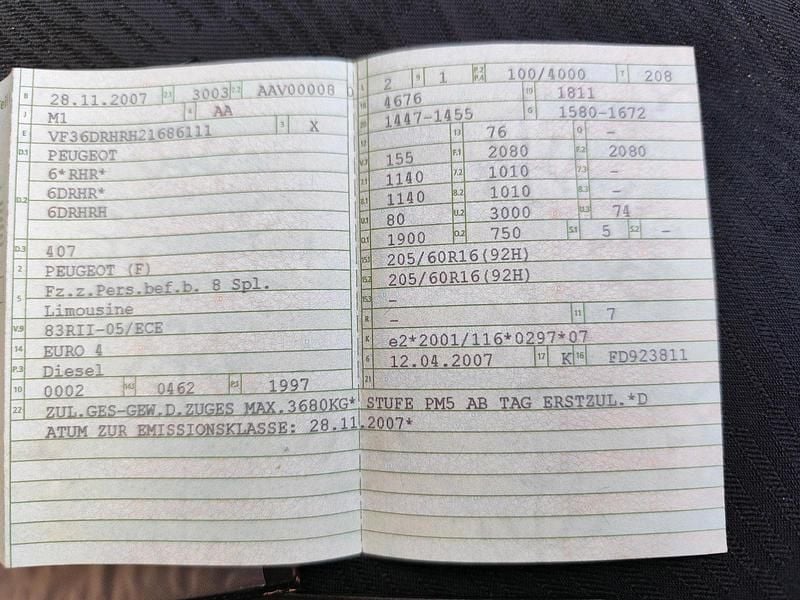 B 28.11.2007 2.1 3003 2.2 AAV00008
J M1 4 AA
E VF36DRHRH21686111 3 X
D.1 PEUGEOT
6*RHR*
D.2 6DRHR*
6DRHRH
D.3 407
2 PEUGEOT (F)
5 Fz.z.Pers.bef.b. 8 Spl.
Limousine
V.9 83RII-05/ECE
14 EURO 4
P.3 Diesel
10 0002 14.1 0462 P.1 1997
22 ZUL.GES-GEW.D.ZUGES MAX.3680KG* STUFE PM5 AB TAG ERSTZUL.*D
ATUM ZUR EMISSIONSKLASSE: 28.11.2007*
L 2 9 1 P.2 P.4 100/4000 T 208
18 4676 19 1811
20 1447-1455 G 1580-1672
12 13 76 Q -
V.7 155 F.1 2080 F.2 2080
7.1 1140 7.2 1010 7.3 -
8.1 1140 8.2 1010 8.3 -
U.1 80 U.2 3000 U.3 74
O.1 1900 O.2 750 S.1 5 S.2 -
15.1 205/60R16(92H)
15.2 205/60R16(92H)
15.3 -
R - 11 7
K e2*2001/116*0297*07
6 12.04.2007 17 K 16 FD923811
21